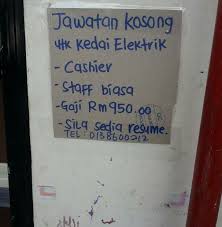 Jawatan Kosong
utk Kedai Elektrik
- Cashier
- Staff biasa
- Gaji RM950.00
- Sila sedia resume.
TEL: 0138600212